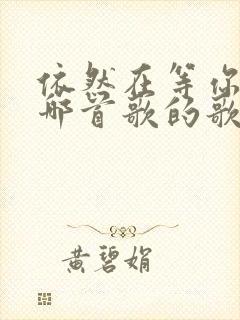 依然在等你
那首歌的歌
黄碧娟